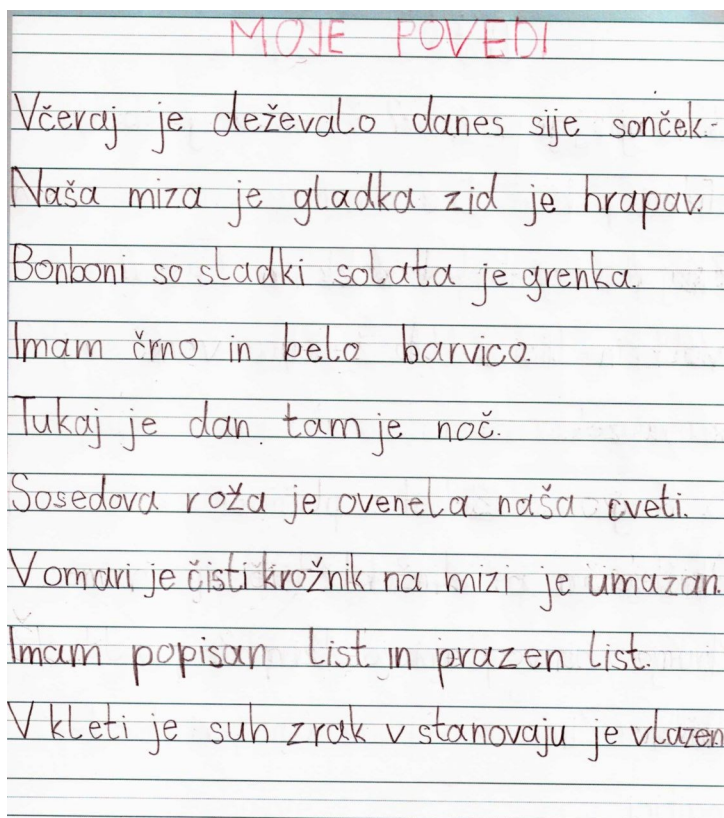 MOJE POVEDI
Včeraj je deževalo danes sije sonček.-
Naša miza je gladka zid je hrapav.
Bonboni so sladki solata je grenka.
Imam črno in belo barvico.
Tukaj je dan. tam je noč.
Sosedova roža je ovenela naša cveti.
V omari je čisti krožnik na mizi je umazan.
Imam popisan list in prazen list.
V kleti je suh zrak v stanovaju je vlazen